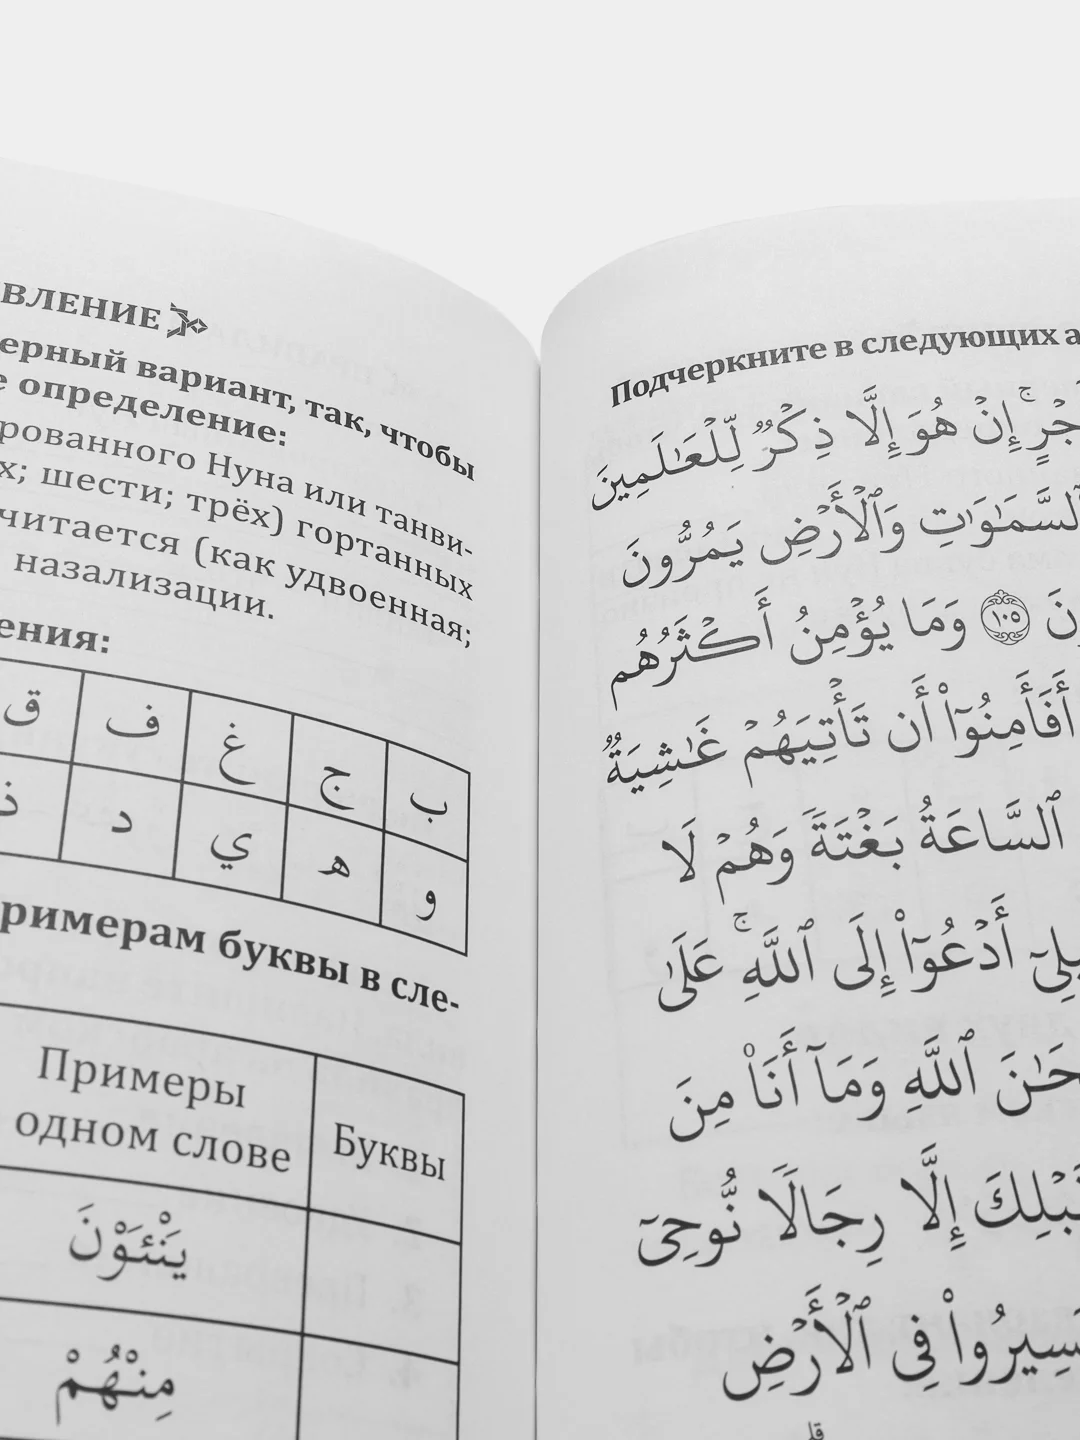 ВЛЕНИЕ
ерный вариант, так, чтобы
е определение:
рованного Нуна или танви-
х; шести; трёх) гортанных
читается (как удвоенная;
назализации.
ения:
ب ج غ ف ق
و ه ي د ذ
римерам буквы в сле-
Примеры
одном слове
Буквы
يَنْـَٔوْنَ
مِنْهُمْ
Подчеркните в следующих а
أَجْرٍ ۚ إِنْ هُوَ إِلَّا ذِكْرٌ لِّلْعَـٰلَمِينَ
ٱلسَّمَـٰوَٰتِ وَٱلْأَرْضِ يَمُرُّونَ
ونَ ١٠٥ وَمَا يُؤْمِنُ أَكْثَرُهُم
أَفَأَمِنُوٓا۟ أَن تَأْتِيَهُمْ غَـٰشِيَةٌ
ٱلسَّاعَةُ بَغْتَةً وَهُمْ لَا
بِيلِىٓ أَدْعُوٓا۟ إِلَى ٱللَّهِ ۚ عَلَىٰ
حَـٰنَ ٱللَّهِ وَمَآ أَنَا۠ مِنَ
قَبْلِكَ إِلَّا رِجَالًا نُّوحِىٓ
يَسِيرُوا۟ فِى ٱلْأَرْضِ